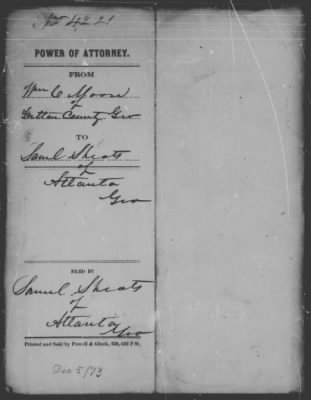 No 4221
POWER OF ATTORNEY.
FROM
Wm C Moore
of
Fulton County Geo
TO
Saml Sheats
of
Atlanta
Geo
FILED BY
Samuel Sheats
of
Atlanta
Geo
Printed and Sold by Powell & Ginck, 630, 632 F St.
Dec 5/73